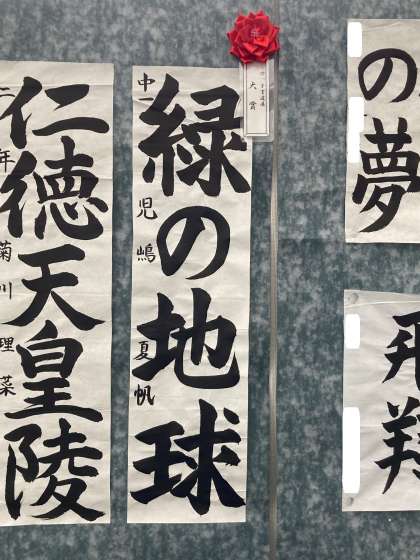 の夢
飛翔
大賞
緑の地球
中一 児嶋 夏帆
仁徳天皇陵
二年 菊川 理菜